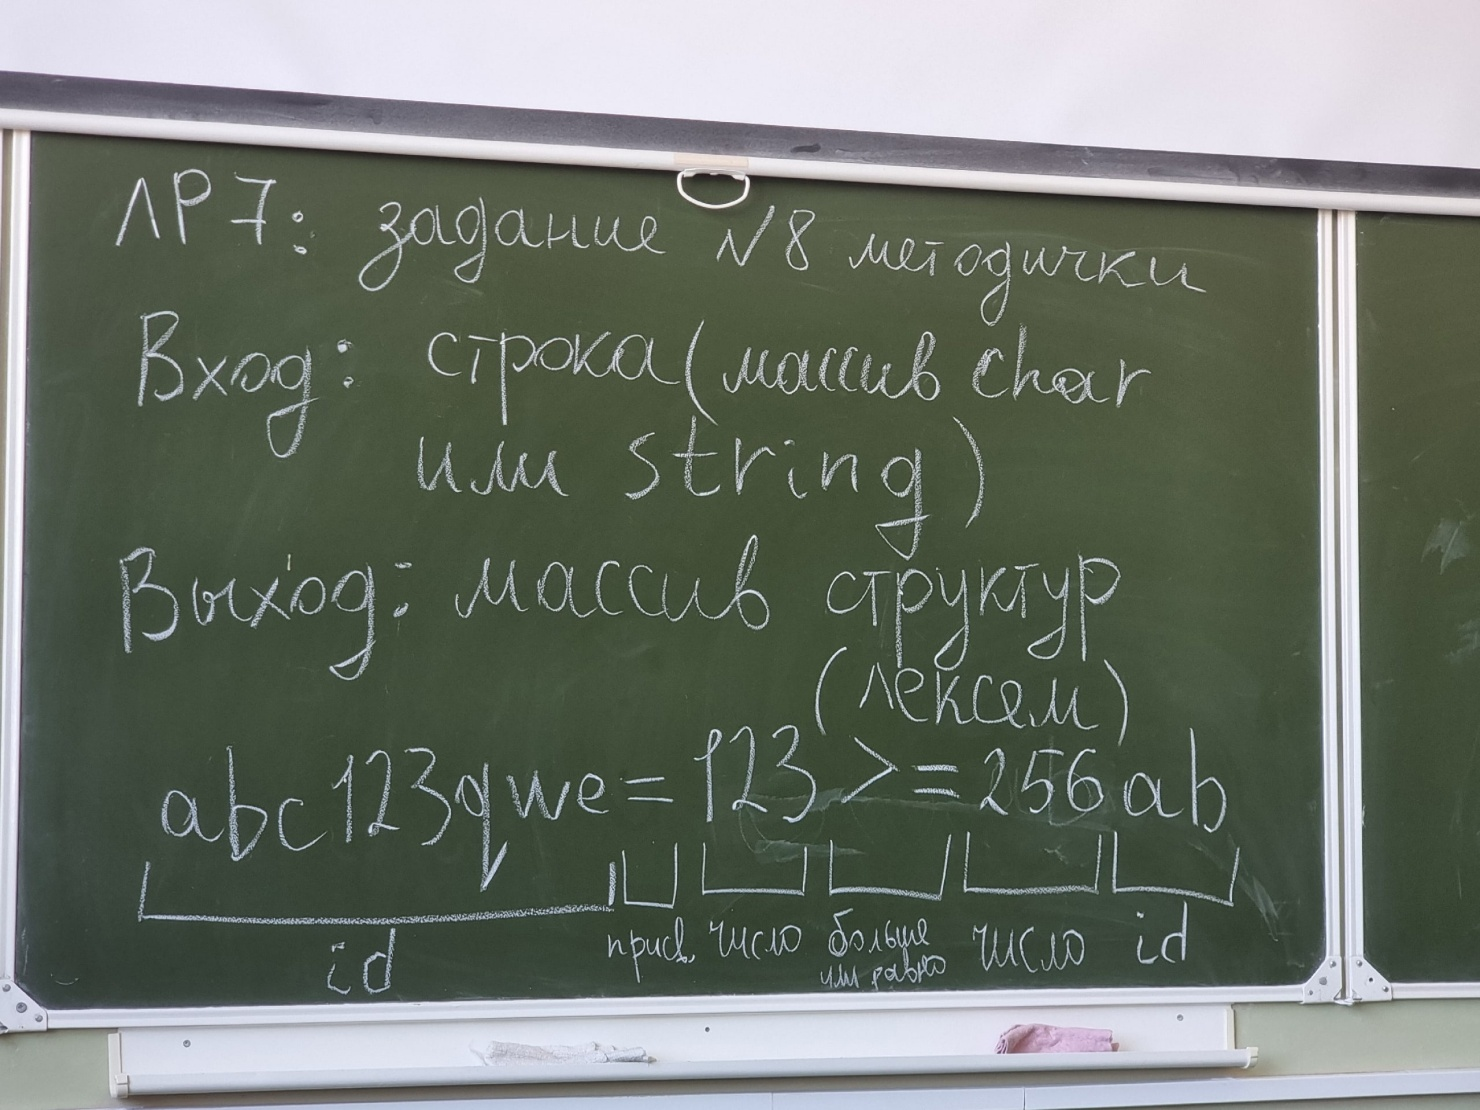 ЛР7: задание №8 методички
Вход: строка (массив char
или string)
Выход: массив структур
(лексем)
abc123qwe = 123 >= 256ab
id присв. число больше или равно число id